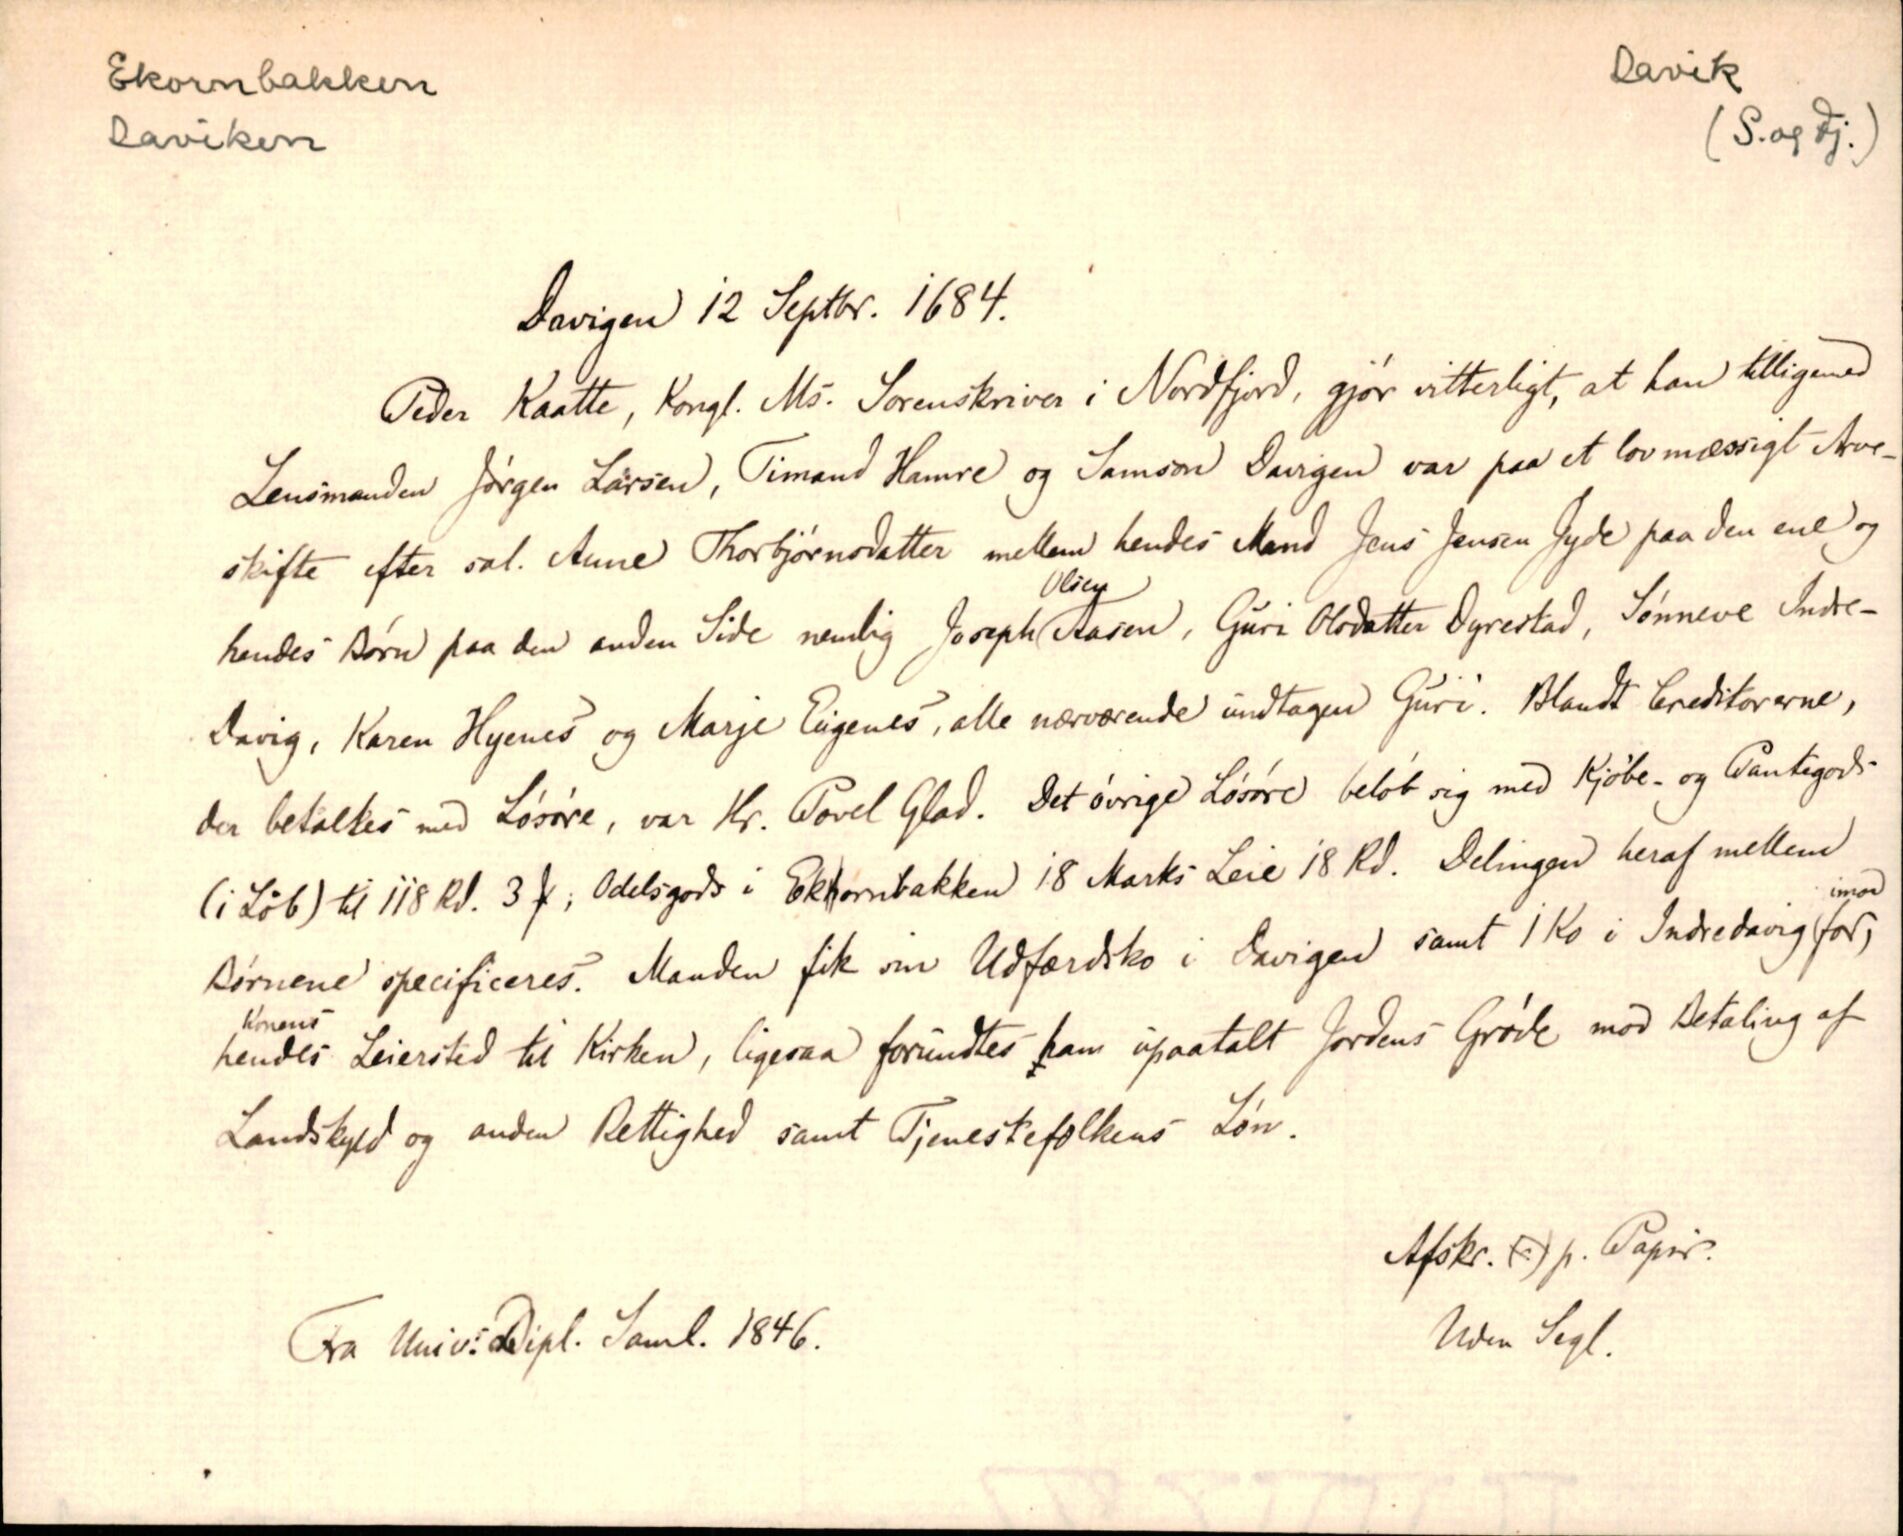 Ekornbakken
Daviken
Davik
(S. og Fj.)
Davigen 12 Septbr. 1684.
Peder Kaatte, Kongl. Ms. Sorenskriver i Nordfjord, gjör vitterligt, at han tilligemed
Lensmanden Jörgen Larsen, Timand Hamre og Samson Davigen var paa et lovmæssigt Arve-
skifte efter sal. Anne Thorbjörnsdatter mellem hendes Mand Jens Jensen Jyde paa den ene og
hendes Börn paa den anden Side nemlig Joseph Olsen Aasen, Guri Olsdatter Dyrestad, Sönneve Indre-
Davig, Karen Hyenes og Marje Eugenes, alle nærværende undtagen Guri. Blandt Creditorerne,
der betaltes med Lösöre, var Hr. Povel Glad. Det övrige Lösöre belöb sig med Kjöbe- og Pantegods
(i Löb) til 118 Rd. 3 ; Odelsgods i Ekhornbakken 18 Marks Leie 18 Rd. Delingen heraf mellem
Börnene specificeres. Manden fik sin Udfærdsko i Davigen samt 1 Ko i Indredavig imod for,
Konens
hendes Leiersted til Kirken, ligesaa forundtes ham upaatalt Jordens Gröde mod Betaling af
Landskyld og anden Rettighed samt Tjenestefolkens Lön.
Afskr. p. Papir.
Uden Segl.
Fra Univ:s Dipl. Saml. 1846.